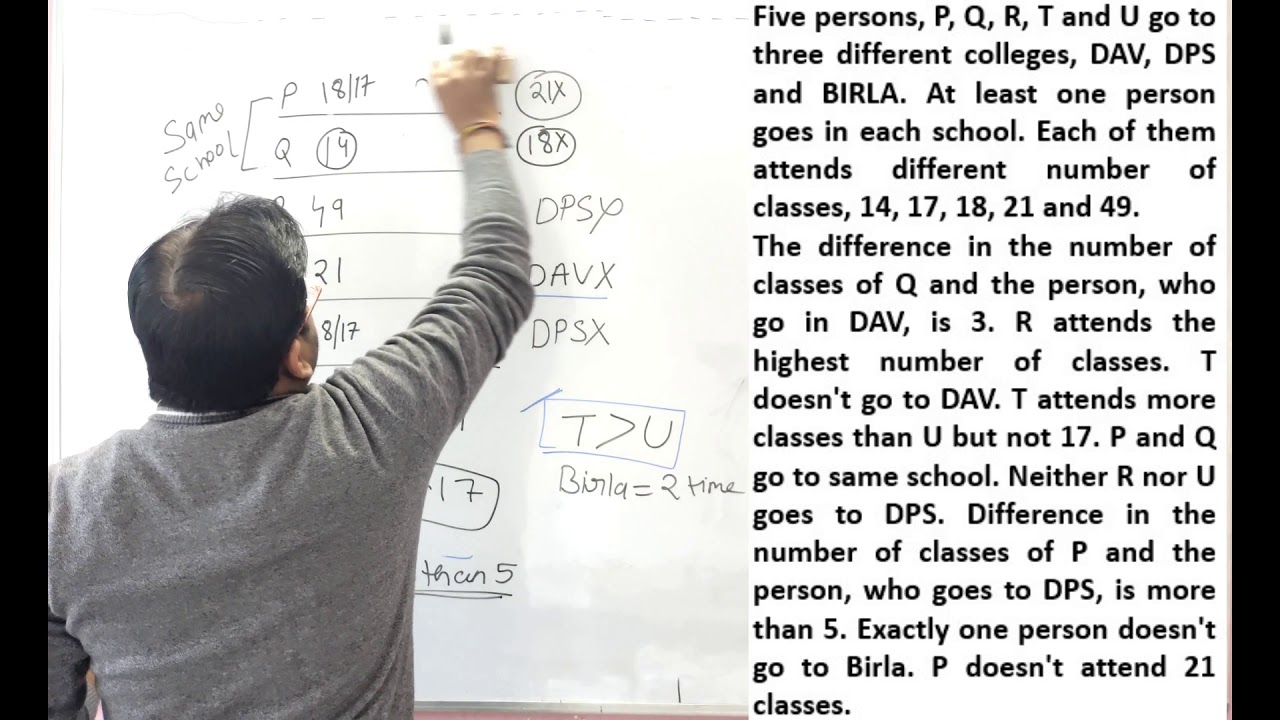 Same
School
P 18/17
21X
Q 14
18X
49
DPSX
21
DAVX
8/17
DPSX
T>U
Birla = 2 time
17
than 5
Five persons, P, Q, R, T and U go to
three different colleges, DAV, DPS
and BIRLA. At least one person
goes in each school. Each of them
attends different number of
classes, 14, 17, 18, 21 and 49.
The difference in the number of
classes of Q and the person, who
go in DAV, is 3. R attends the
highest number of classes. T
doesn't go to DAV. T attends more
classes than U but not 17. P and Q
go to same school. Neither R nor U
goes to DPS. Difference in the
number of classes of P and the
person, who goes to DPS, is more
than 5. Exactly one person doesn't
go to Birla. P doesn't attend 21
classes.